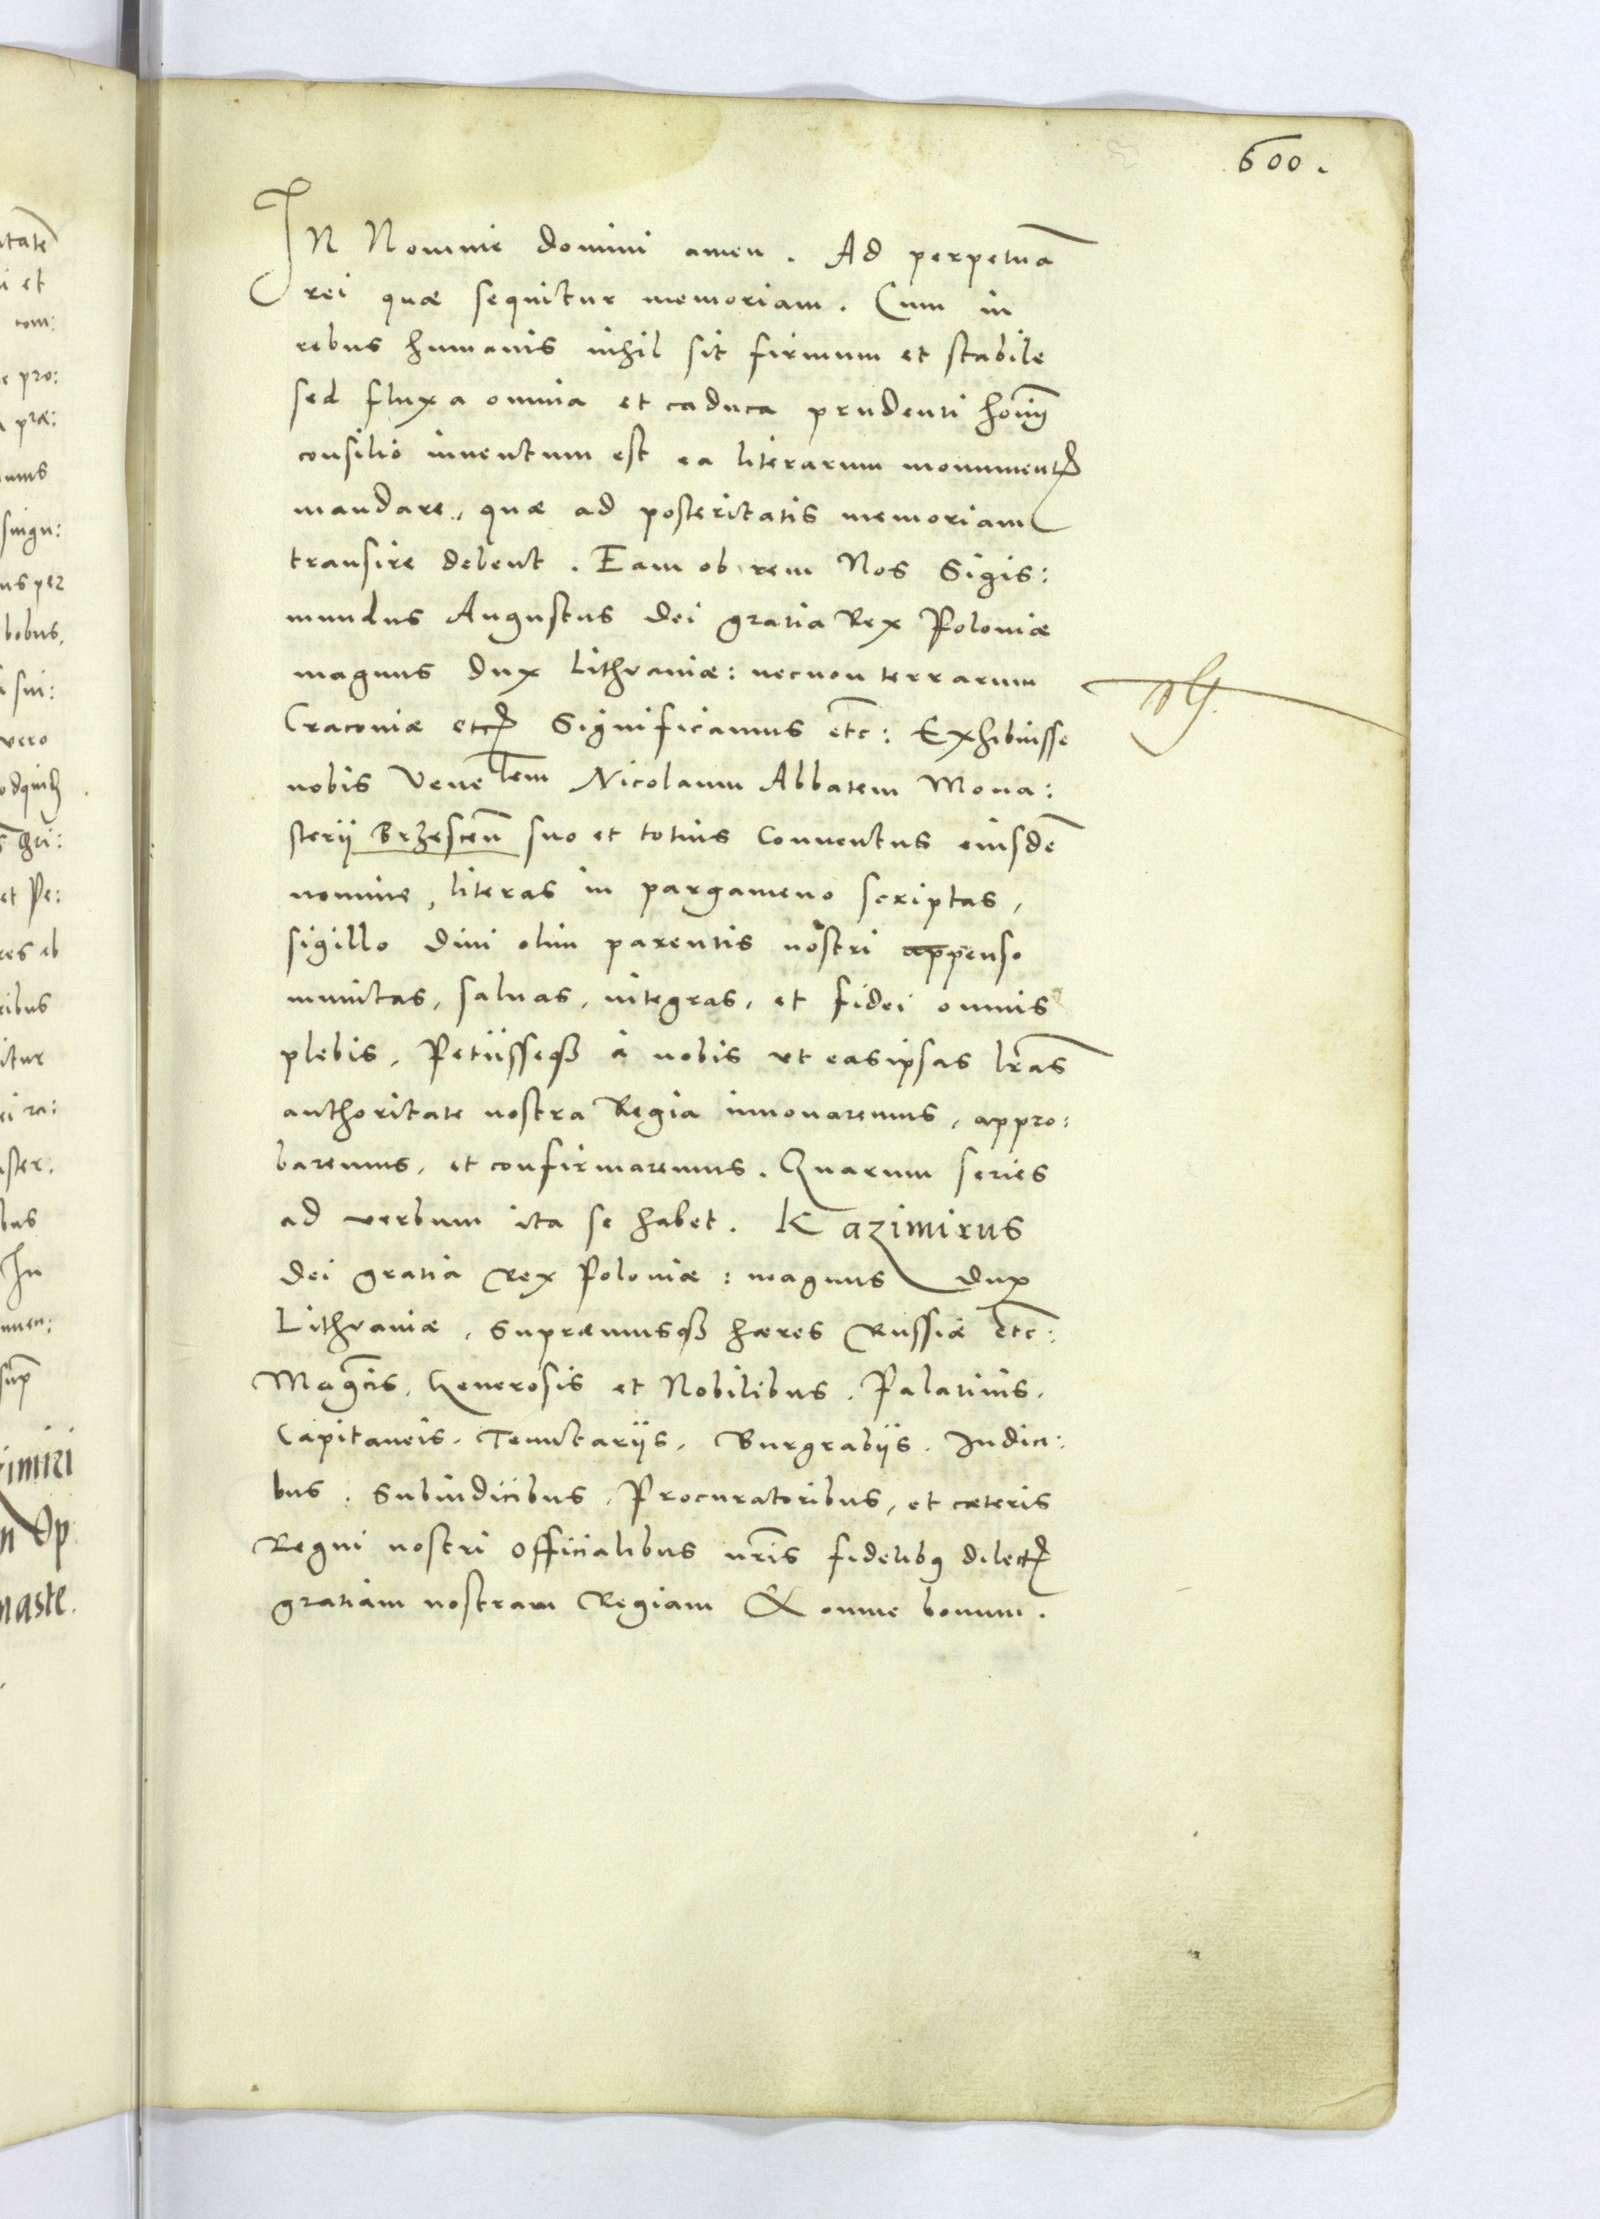 600.
IN Nomine Domini amen. Ad perpetuā
rei quæ sequitur memoriam. Cum in
rebus humanis nihil sit firmum et stabile
sed fluxa omnia et caduca prudenti
consilio inventum est ea literarum
mandare, quæ ad posteritatis memoriam
transire debent. Eam ob rem Nos Sigis:
mundus Augustus Dei gratia Rex Poloniæ
magnus Dux Lithvaniæ: necnon terrarum
Cracoviæ Significamus etc: Exhibuisse
nobis Venelem Nicolaum Abbatem Mona:
sterij Brzescen̄ suo et totius Conventus eiusdē
nomine, literas in pargameno scriptas,
sigillo Divi olim parentis nostri appenso
munitas, salvas, integras, et fidei omnis
plebis, Petiisseqꝫ à nobis ut easipsas lr̄as
authoritate nostra Regia innovaremus, appro:
baremus, et confirmaremus. Quarum series
ad verbum ita se habet. Kazimirus
Dei gratia Rex Poloniæ: magnus Dux
Lithvaniæ, Supræmusqꝫ hæres Russiæ etc:
Mag̅cis, Generosis et Nobilibus, Palatinis,
Capitaneis, Tenutariis, Burgrabiis, Iudici:
bus, Subiudicibus, Procuratoribus, et cæteris
Regni nostri Officialibus nr̄is fidelibꝰ
gratiam nostram Regiam & omne bonum.